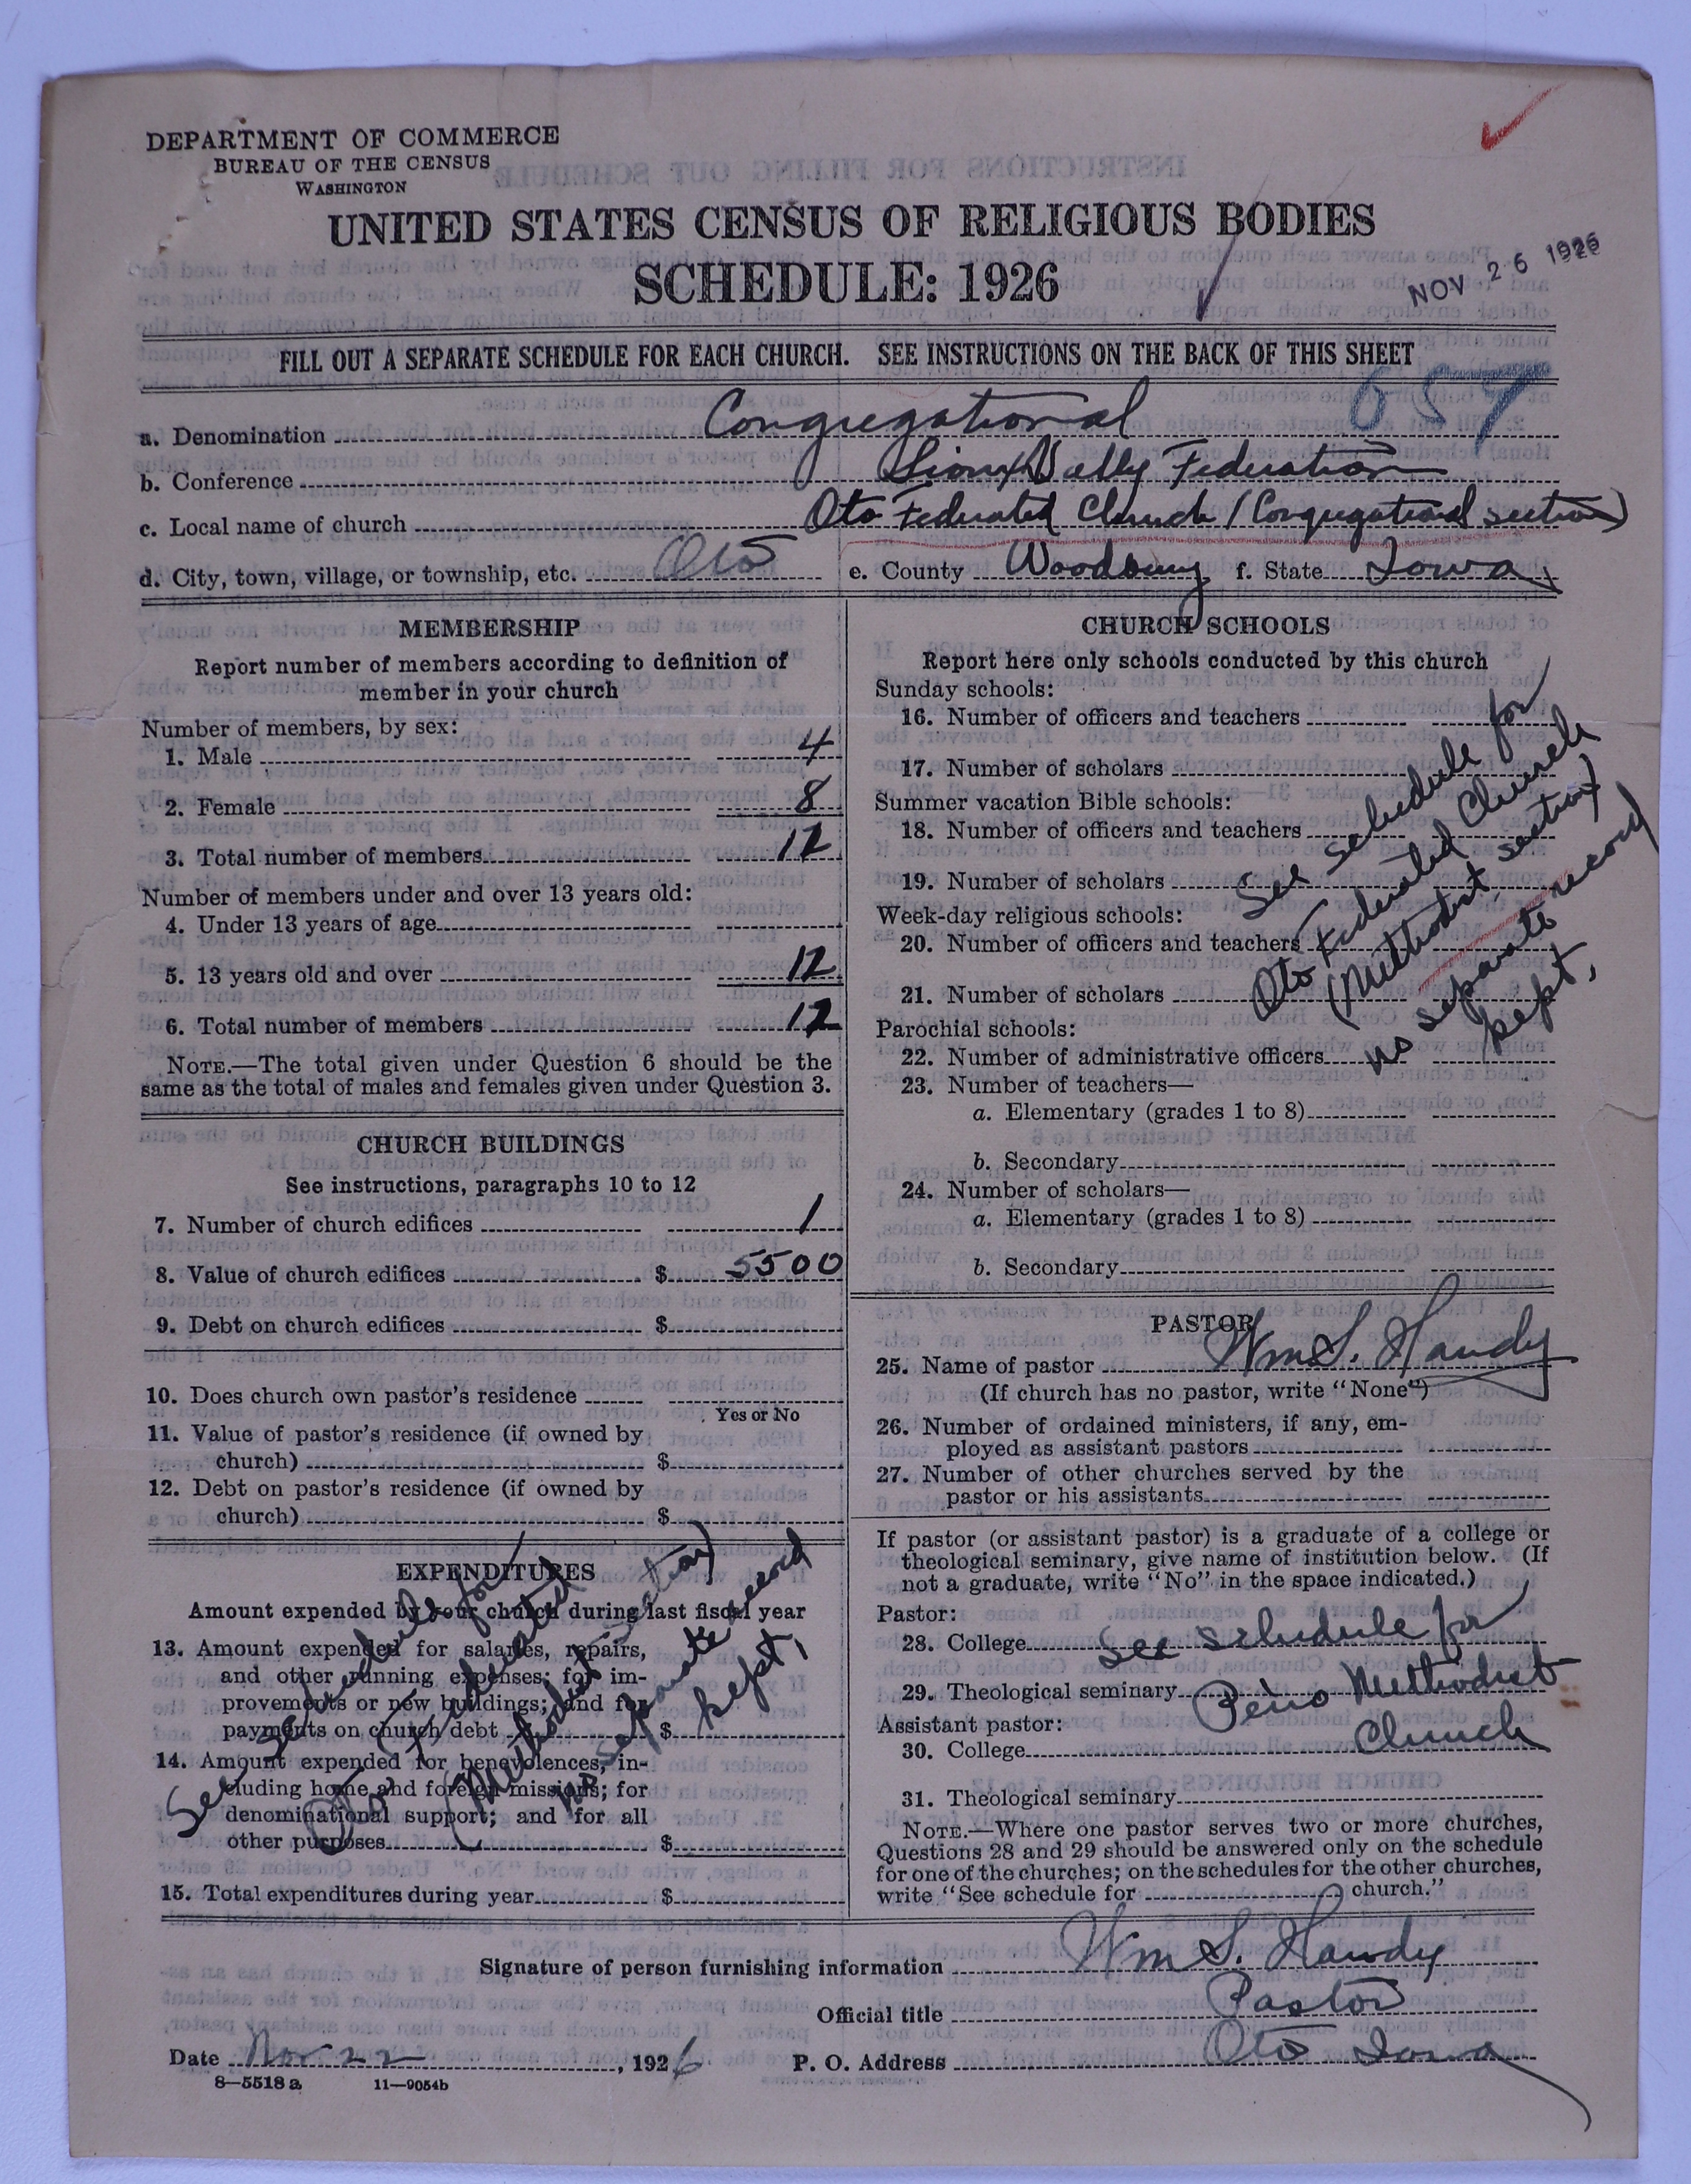 DEPARTMENT OF COMMERCE
BUREAU OF THE CENSUS
WASHINGTON
UNITED STATES CENSUS OF RELIGIOUS BODIES
SCHEDULE: 1926
NOV 26 1926
FILL OUT A SEPARATE SCHEDULE FOR EACH CHURCH. SEE INSTRUCTIONS ON THE BACK OF THIS SHEET
a. Denomination Congregational
b. Conference Sioux Vally Federation
c. Local name of church Oto Federated Church (Congregational section)
d. City, town, village, or township, etc. Oto e. County Woodbury f. State Iowa
MEMBERSHIP
Report number of members according to definition of
member in your church
Number of members, by sex:
1. Male 4
2. Female 8
3. Total number of members 12
Number of members under and over 13 years old:
4. Under 13 years of age
5. 13 years old and over 12
6. Total number of members 12
NOTE.—The total given under Question 6 should be the
same as the total of males and females given under Question 3.
CHURCH BUILDINGS
See instructions, paragraphs 10 to 12
7. Number of church edifices 1
8. Value of church edifices $ 5500
9. Debt on church edifices $
10. Does church own pastor's residence
Yes or No
11. Value of pastor's residence (if owned by
church) $
12. Debt on pastor's residence (if owned by
church) $
EXPENDITURES
Amount expended by your church during last fiscal year
13. Amount expended for salaries, repairs,
and other running expenses; for im-
provements or new buildings; and for
payments on church debt $
14. Amount expended for benevolences, in-
cluding home and foreign missions; for
denominational support; and for all
other purposes $
15. Total expenditures during year $
See schedule for
Oto Federated
(Methodist section)
no separate record
kept,
CHURCH SCHOOLS
Report here only schools conducted by this church
Sunday schools:
16. Number of officers and teachers
17. Number of scholars
Summer vacation Bible schools:
18. Number of officers and teachers
19. Number of scholars
Week-day religious schools:
20. Number of officers and teachers
21. Number of scholars
Parochial schools:
22. Number of administrative officers
23. Number of teachers—
a. Elementary (grades 1 to 8)
b. Secondary
24. Number of scholars—
a. Elementary (grades 1 to 8)
b. Secondary
See schedule for
Oto Federated Church
(Methodist section)
no separate record
kept,
PASTOR
25. Name of pastor Wm S. Handy
(If church has no pastor, write "None")
26. Number of ordained ministers, if any, em-
ployed as assistant pastors
27. Number of other churches served by the
pastor or his assistants
If pastor (or assistant pastor) is a graduate of a college or
theological seminary, give name of institution below. (If
not a graduate, write "No" in the space indicated.)
Pastor:
28. College See schedule for
29. Theological seminary Peiro Methodist
Assistant pastor:
30. College Church
31. Theological seminary
NOTE.—Where one pastor serves two or more churches,
Questions 28 and 29 should be answered only on the schedule
for one of the churches; on the schedules for the other churches,
write "See schedule for church."
Signature of person furnishing information Wm S. Handy
Official title Pastor
Date Nov 22, 1926 P. O. Address Oto Iowa
8—5518a 11—9054b